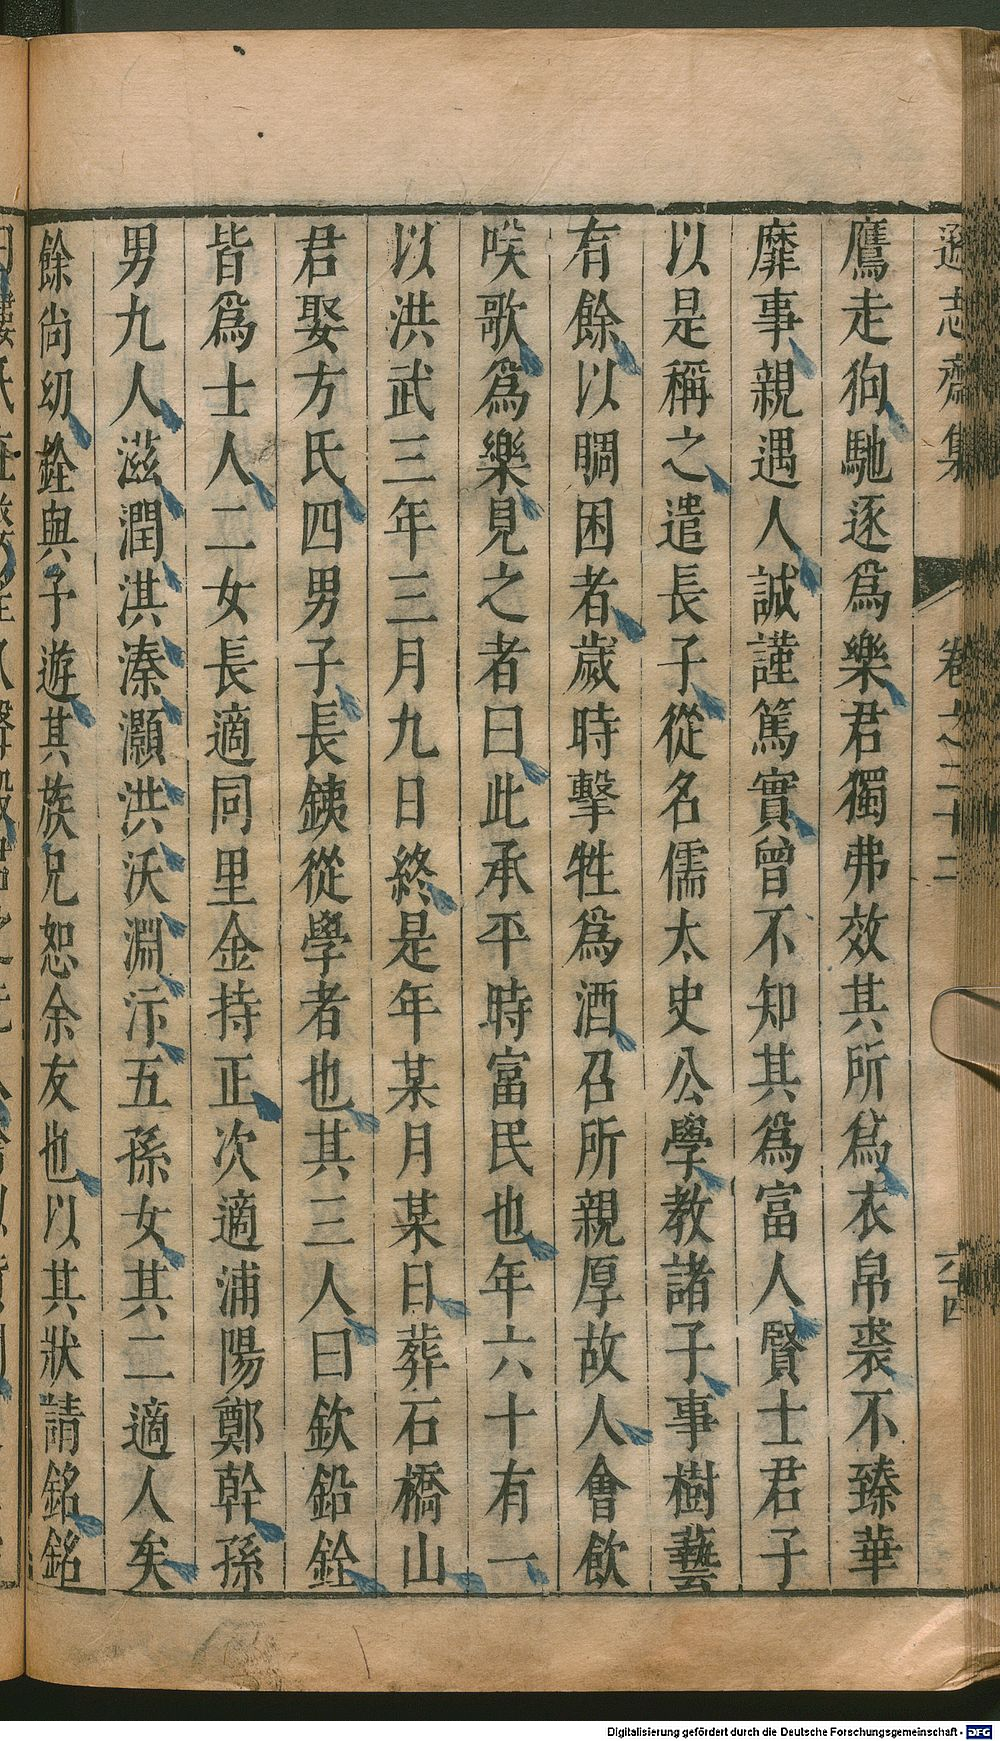 遜志齋集 卷之二十二 六四
鷹走狗馳逐爲樂君獨弗效其所爲衣帛裘不臻華
靡事親遇人誠謹篤實曾不知其爲富人賢士君子
以是稱之遣長子從名儒太史公學教諸子事樹藝
有餘以賙困者歲時擊牲爲酒召所親厚故人會飲
啖歌爲樂見之者曰此承平時富民也年六十有一
以洪武三年三月九日終是年某月某日葬石橋山
君娶方氏四男子長銕從學者也其三人曰欽鉛銓
皆爲士人二女長適同里金持正次適浦陽鄭幹孫
男九人滋潤淇溱灝洪沃淵汴五孫女其二適人矣
餘尚幼銓與予遊其族兄恕余友也以其狀請銘銘
Digitalisierung gefördert durch die Deutsche Forschungsgemeinschaft - DFG